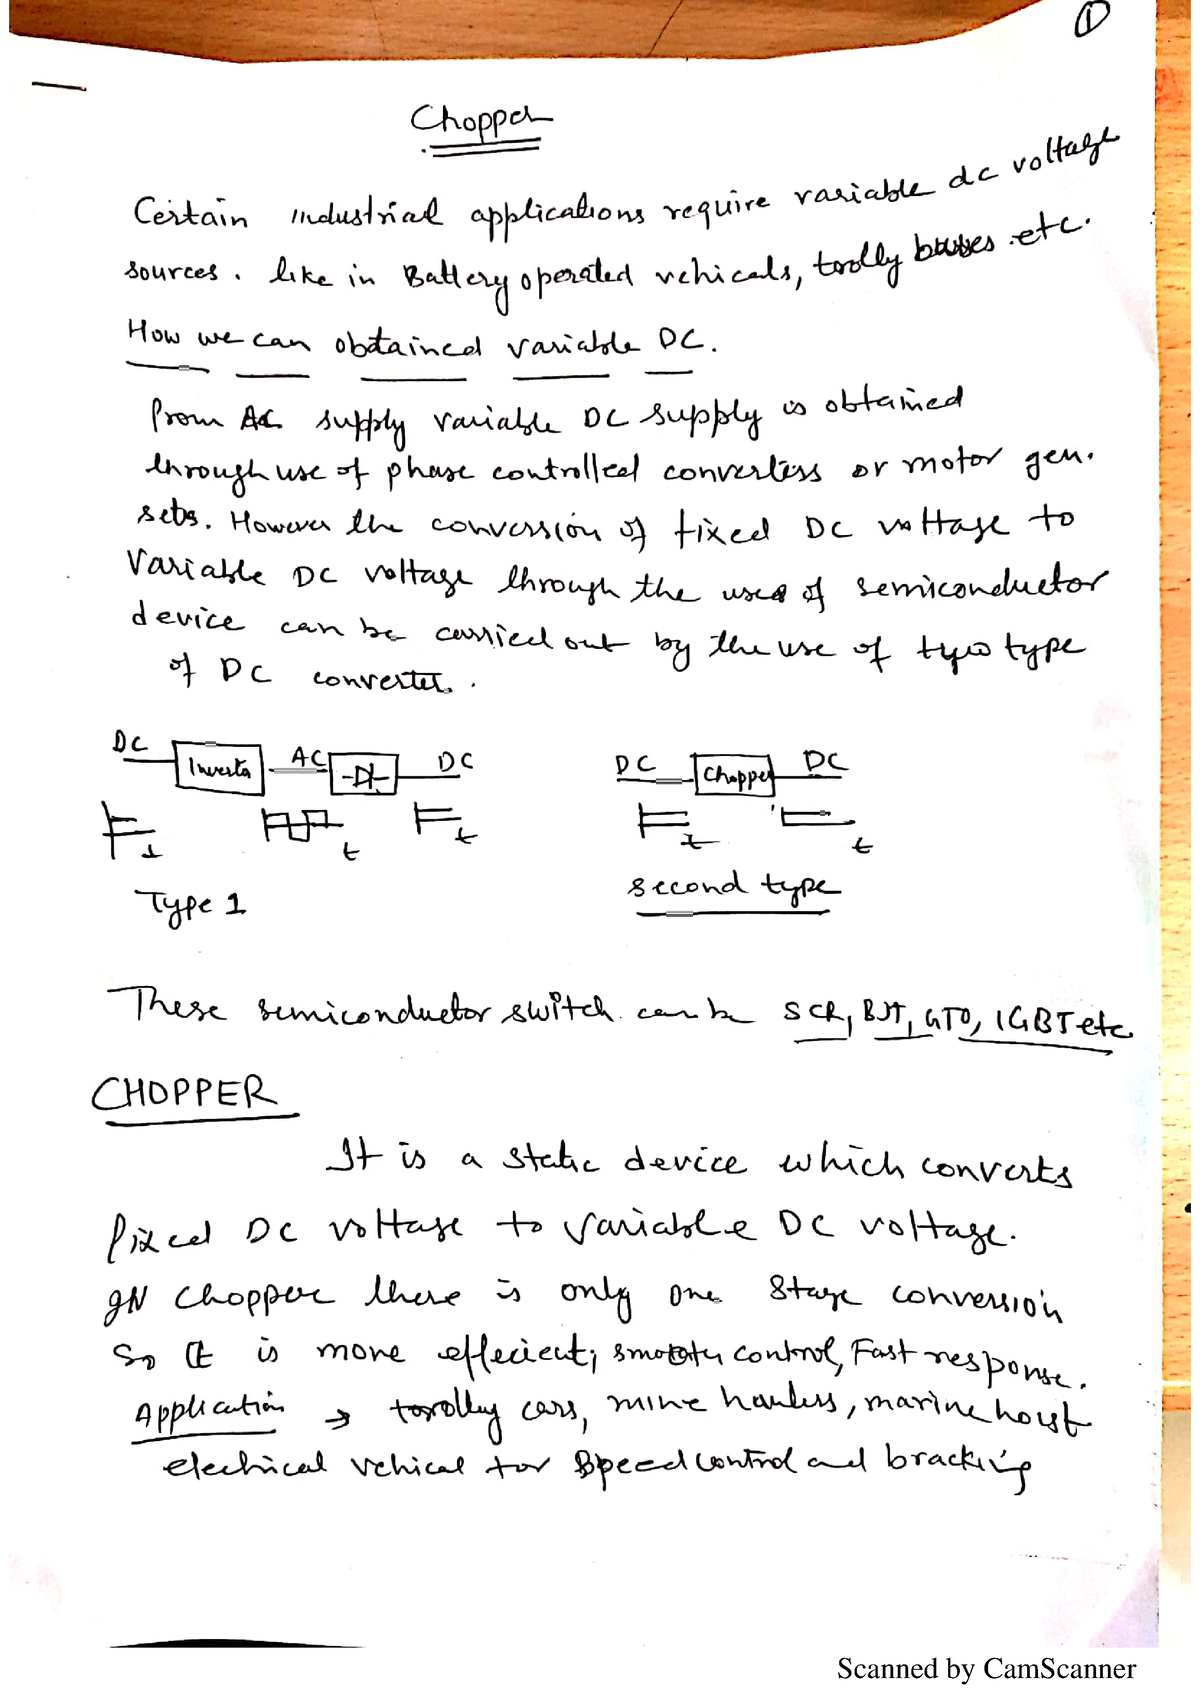 1
Chopper
Certain industrial applications require variable dc voltage
sources. like in Battery operated vehicals, toolly buses etc.
How we can obtained variable DC.
From AC supply variable DC supply is obtained
through use of phase controlled converters or motor gen.
sets. However the conversion of fixed DC voltage to
Variable DC voltage through the use of semiconductor
device can be carried out by the use of two type
of DC converter.
DC Inverter AC DC DC Chopper DC
t t t t t
Type 1 second type
These semiconductor switch can be SCR, BJT, GTO, IGBT etc
CHOPPER
It is a static device which converts
fixed DC voltage to variable DC voltage.
IN chopper there is only one stage conversion
So it is more effecient; smooth control, Fast response.
Application → trolly cars, mine haulers, marine hoist
electrical vehical for speed control and bracking
Scanned by CamScanner